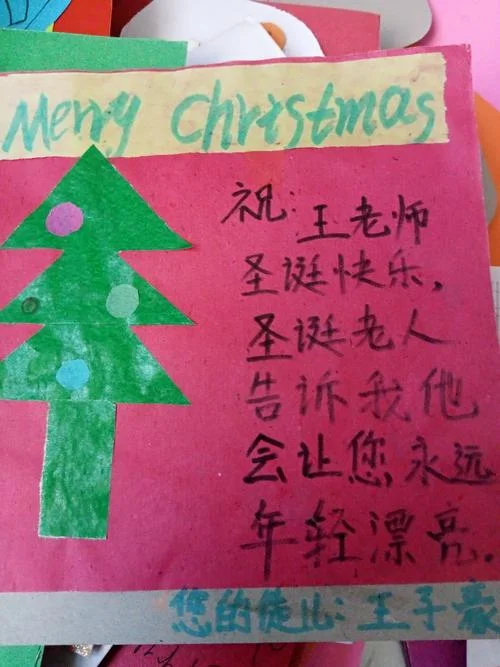 Merry Christmas
祝：王老师
圣诞快乐，
圣诞老人
告诉我他
会让您永远
年轻漂亮.
您的徒儿：王子豪